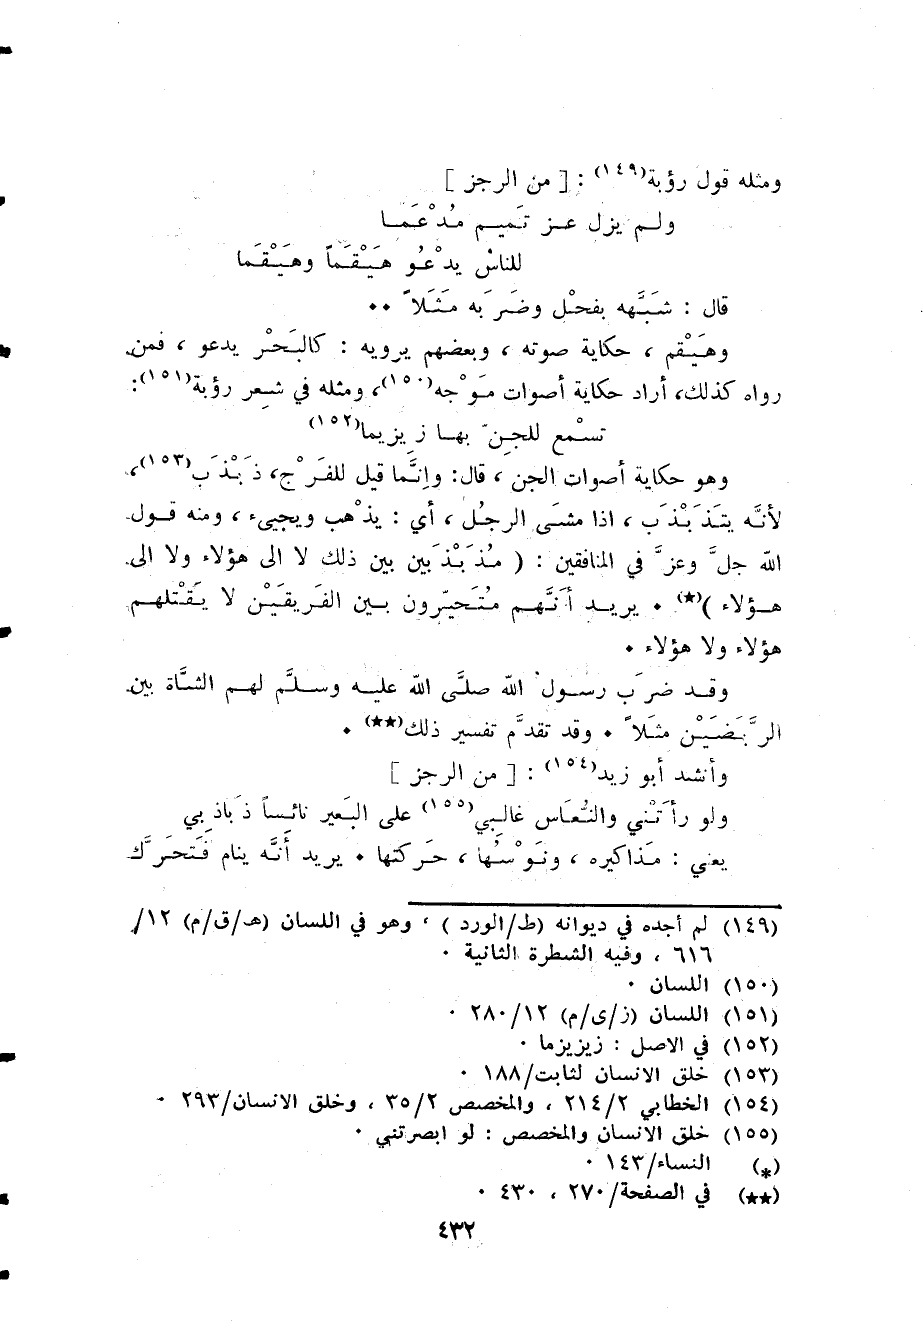 ومثله قول رؤبة(١٤٩) : [ من الرجز ]
ولـم يزل عـز تَميـم مُـدْعَمـا
للناسْ يدْعُـو هَيْقَمـاً وهَيْقَمـا
قال : شَبَّهه بفحْل وضَرَبه مَثَلاً ..
وهَيْقم ، حكاية صوته ، وبعضهم يرويه : كالبَحْر يدعو ، فمن
رواه كذلك، أراد حكاية أصوات مَوْجه(١٥٠)، ومثله في شِعر رؤبة(١٥١):
تسْمع للجنّ بهـا زيزيما(١٥٢)
وهو حكاية أصوات الجن ، قال: وإنَّما قيل للفَرْج، ذَبْذَب(١٥٣)،
لأنَّه يتَذَبْذَب ، اذا مشَى الرجُل ، أي : يذْهب ويجيىء ، ومنه قـول
الله جلَّ وعزَّ في المنافقين : ( مُذَبْذَبين بين ذلك لا الى هؤلاء ولا الى
هـؤلاء )(★) . يريـد أنَّهـم مُتَحيّرون بـين الفَريقَيْن لا يقْتلهـم
هؤلاء ولا هؤلاء .
وقـد ضرَب رسـولُ الله صلَّى الله عليـه وسـلَّم لهـم الشَّاة بين
الرَّبَضَيْن مثلاً . وقد تقدَّم تفسير ذلك(★★) .
وأنشد أبو زيد(١٥٤) : [ من الرجز ]
ولو رأتْني والنُّعَاس غالبي(١٥٥) على البَعير نائساً ذَباذِبي
يعني : مَذاكيره ، ونَوْسُها ، حَركتها . يريد أنَّه ينام فَتحرَّك
(١٤٩) لم أجده في ديوانه (ط/الورد ) ، وهو في اللسان (هـ/ق/م) ١٢/
٦١٦ ، وفيه الشطرة الثانية .
(١٥٠) اللسان .
(١٥١) اللسان (ز/ى/م) ٢٨٠/١٢ .
(١٥٢) في الاصل : زيزيزما .
(١٥٣) خلق الانسان لثابت/١٨٨ .
(١٥٤) الخطابي ٢١٤/٢ ، والمخصص ٣٥/٢ ، وخلق الانسان/٢٩٣ .
(١٥٥) خلق الانسان والمخصص : لو ابصرتني .
(★) النساء/١٤٣ .
(★★) في الصفحة/٢٧٠ ، ٤٣٠ .
٤٣٢